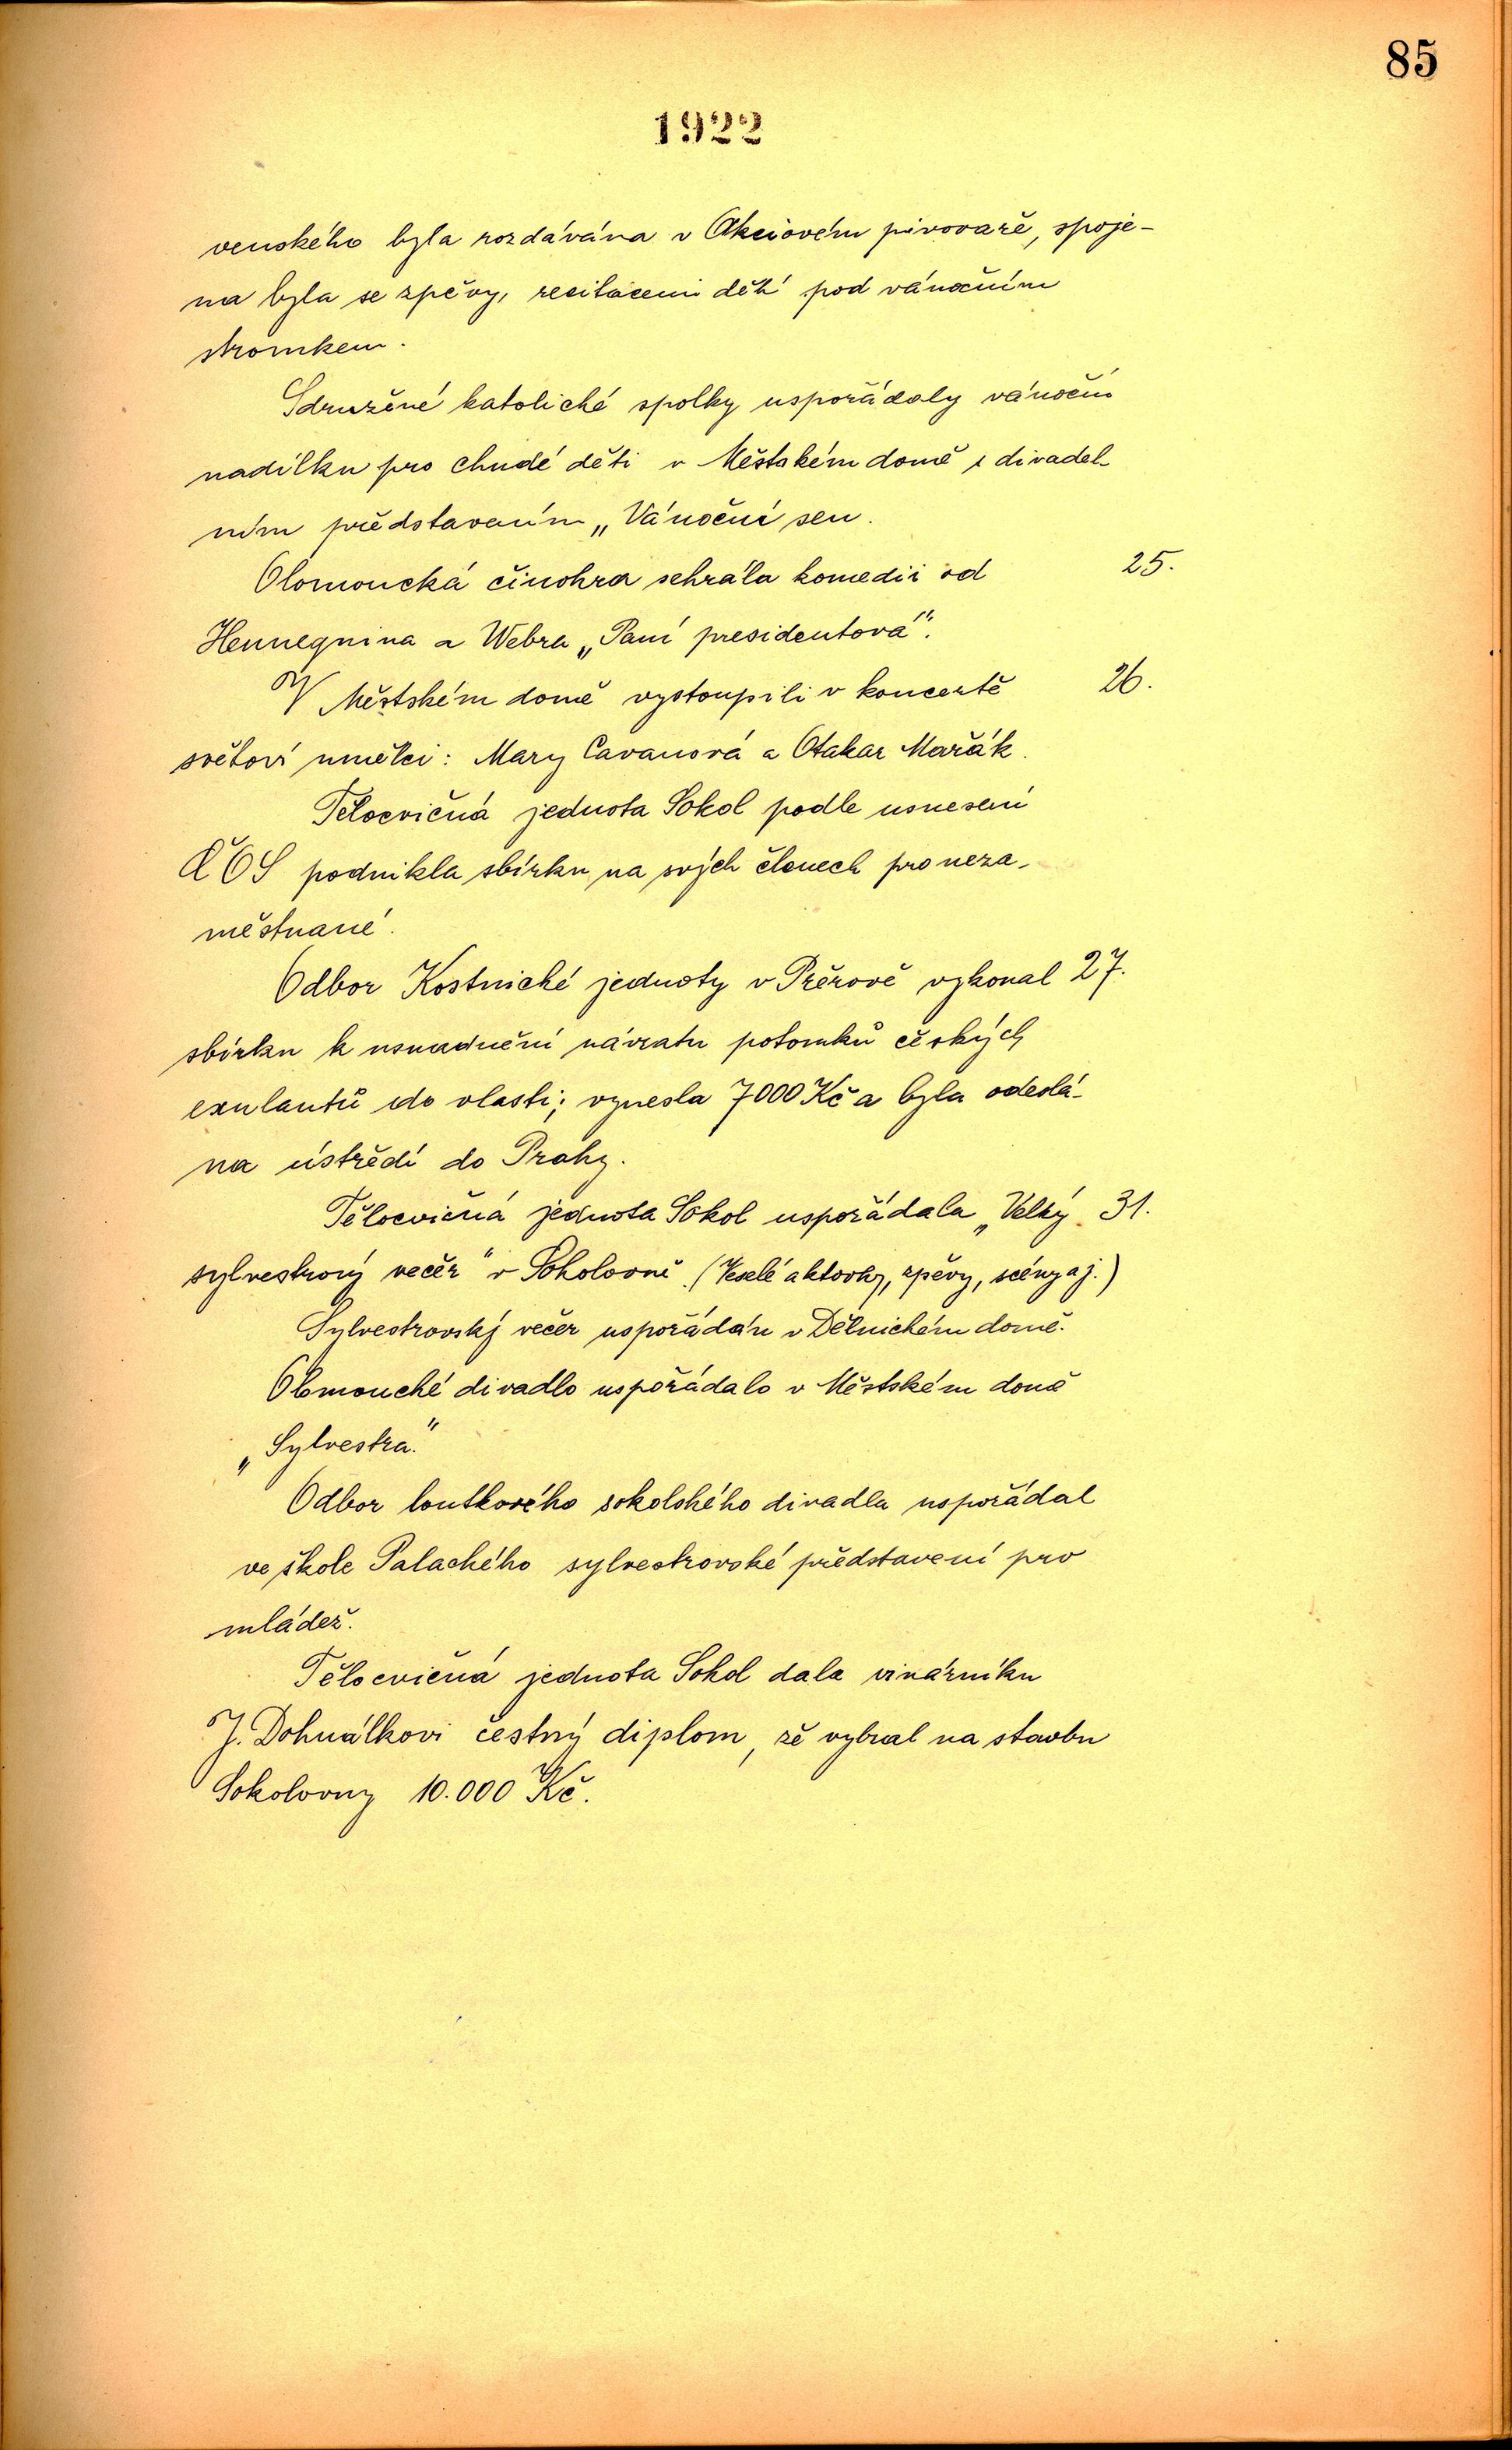 85
1922
venského byla rozdávána v Akciovém pivovaře, spoje-
na byla se zpěvy, recitacemi dětí pod vánočním
stromkem.
Sdružené katolické spolky uspořádaly vánoční
nadílku pro chudé děti v Městském domě s divadel-
ním představením „Vánoční sen.
Olomoucká činohra sehrála komedii od 25.
Hennequina a Webra „Paní presidentová".
V Městském domě vystoupili v koncertě 26.
světoví umělci: Mary Cavanová a Otakar Mařák.
Tělocvičná jednota Sokol podle usnesení
ČOS podnikla sbírku na svých členech pro neza-
městnané.
Odbor Kostnické jednoty v Přerově vykonal 27.
sbírku k usnadnění návratu potomků českých
exulantů do vlasti; vynesla 7000 Kč a byla odeslá-
na ústředí do Prahy.
Tělocvičná jednota Sokol uspořádala „Velký 31.
sylvestrový večěr" v Sokolovně. (Veselé aktovky, zpěvy, scény aj.)
Sylvestrovský večer uspořádán v Dělnickém domě.
Olomoucké divadlo uspořádalo v Městském domě
„Sylvestra."
Odbor loutkového sokolského divadla uspořádal
ve škole Palackého sylvestrovské představení pro
mládež.
Tělocvičná jednota Sokol dala vinárníku
J. Dohnálkovi čestný diplom, že vybral na stavbu
Sokolovny 10.000 Kč.